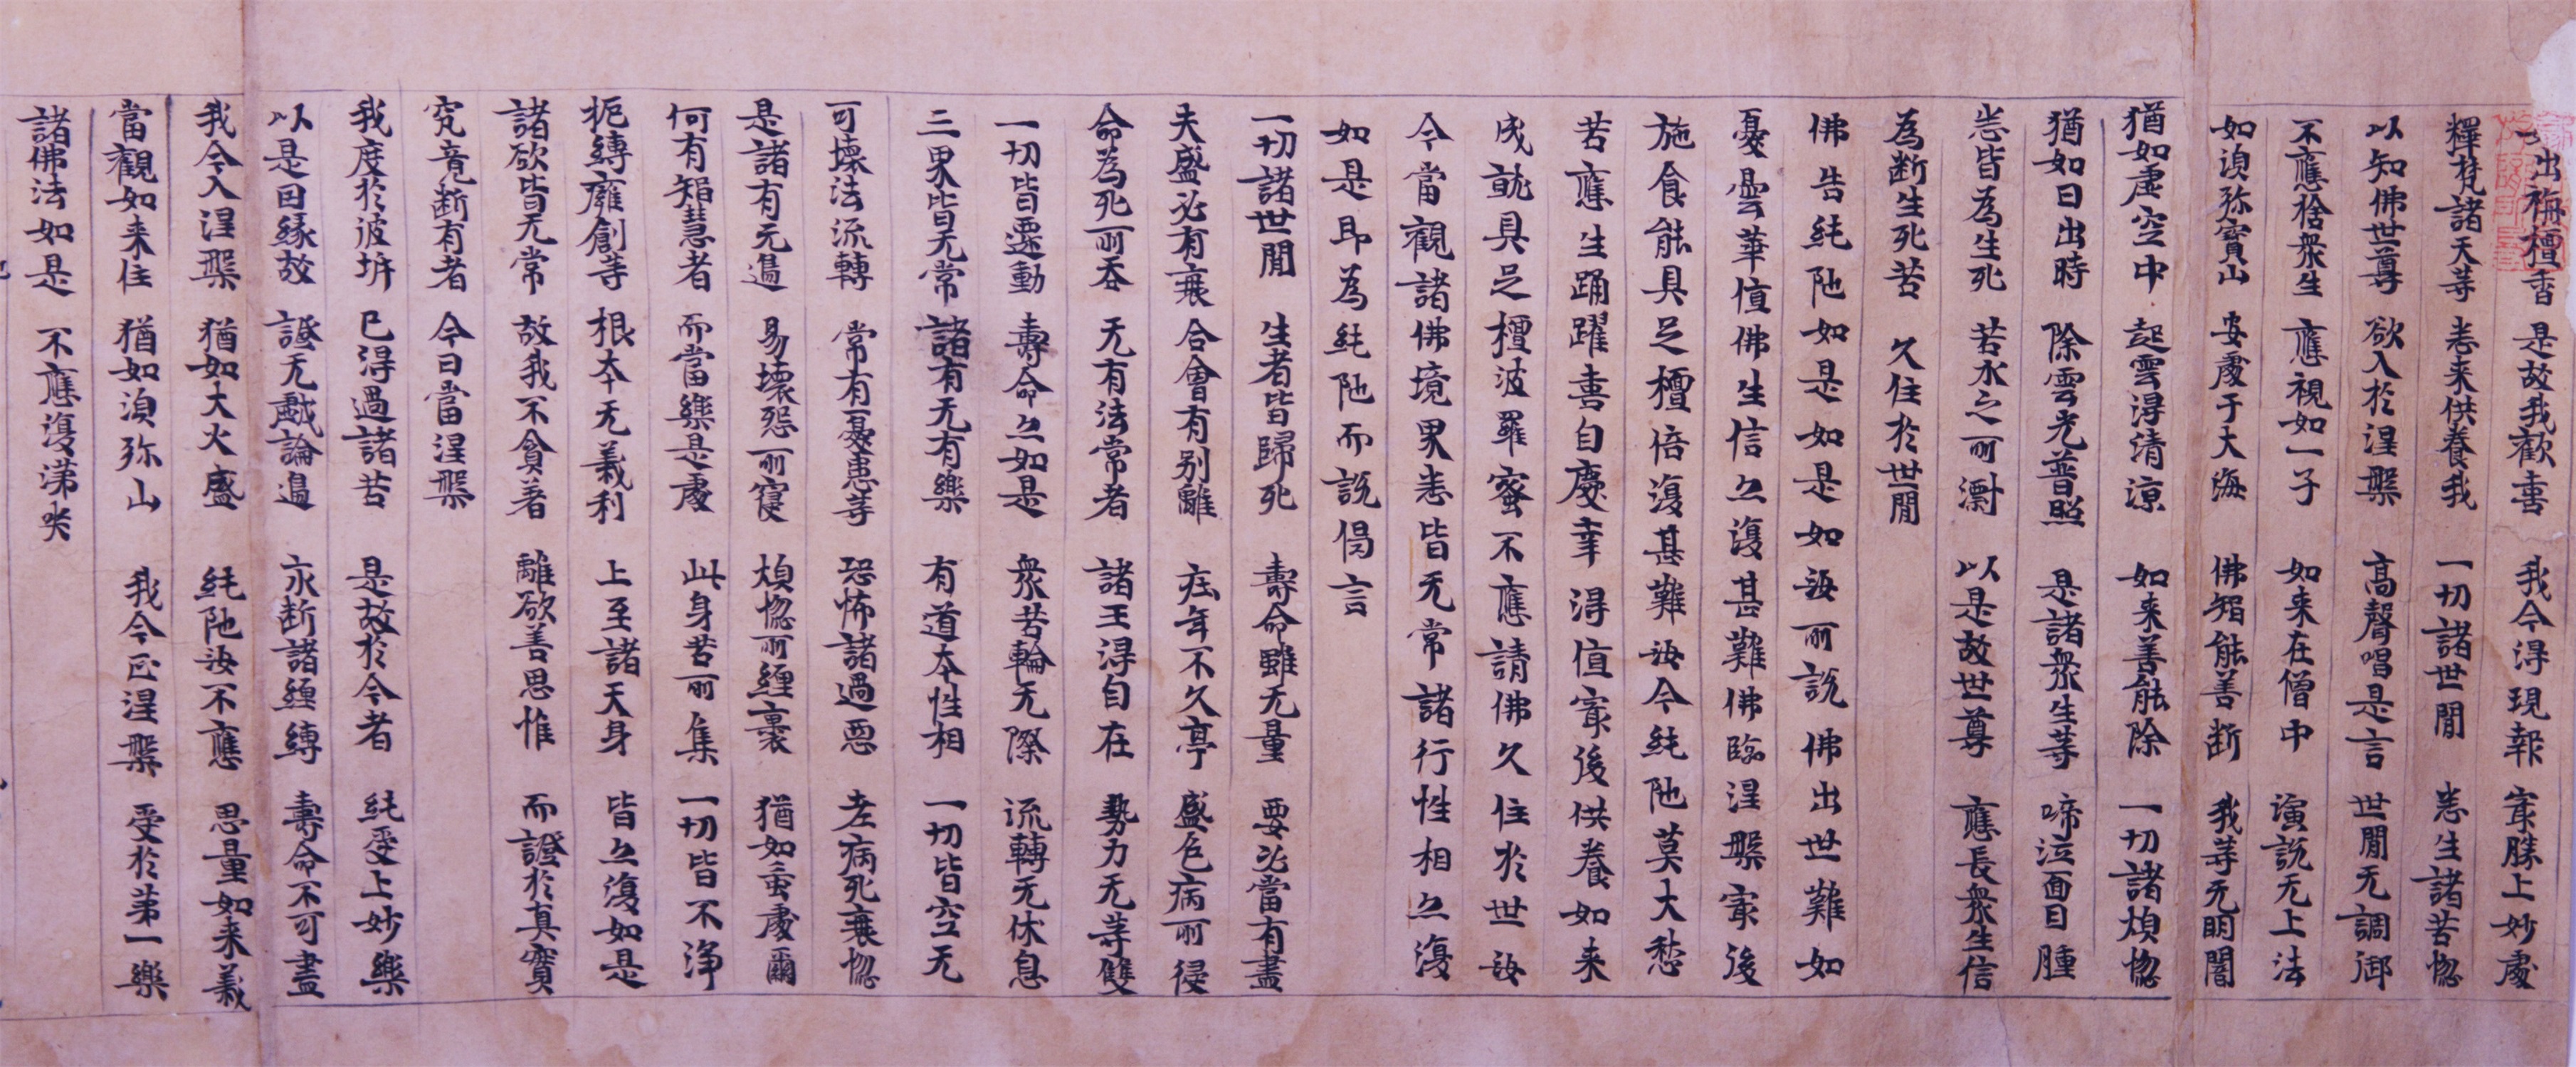 出栴檀香 是故我歡喜 我今得現報 㝡勝上妙處
釋梵諸天等 悉来供養我 一切諸世間 悉生諸苦惱
以知佛世尊 欲入於涅槃 高聲唱是言 世間无調御
不應捨衆生 應視如一子 如来在僧中 演說无上法
如湏弥寶山 安處于大海 佛智能善断 我等无明闇
猶如虛空中 起雲得清凉 如来善能除 一切諸煩惱
猶如日出時 除雲光普照 是諸衆生等 啼泣面目腫
悉皆為生死 苦水之所漂 以是故世尊 應長衆生信
為断生死苦 久住於世間
佛告純陁如是如是如汝所說佛出世難如
憂曇華值佛生信亦復甚難佛臨涅槃㝡後
施食能具足檀倍復甚難汝今純陁莫大愁
苦應生踊躍喜自慶幸得值㝡後供養如来
成就具足檀波羅蜜不應請佛久住於世汝
今當觀諸佛境界悉皆无常諸行性相亦復
如是即為純陁而說偈言
一切諸世間 生者皆歸死 壽命雖无量 要必當有盡
夫盛必有衰 合會有别離 壯年不久亭 盛色病所侵
命為死所吞 无有法常者 諸王得自在 勢力无等雙
一切皆遷動 壽命亦如是 衆苦輪无際 流轉无休息
三界皆无常 諸有无有樂 有道本性相 一切皆空无
可壞法流轉 常有憂患等 恐怖諸過惡 老病死衰惱
是諸有无邊 易壞怨所寑 煩惱所纏裹 猶如蚕處薾
何有智慧者 而當樂是處 此身苦所集 一切皆不淨
扼縛癰創等 根本无義利 上至諸天身 皆亦復如是
諸欲皆无常 故我不貪著 離欲善思惟 而證於真實
究竟断有者 今日當涅槃
我度於彼岸 已得過諸苦 是故於今者 純受上妙樂
以是因緣故 證无戲論邊 永断諸纏縛 壽命不可盡
我今入涅槃 猶如大火盛 純陁汝不應 思量如来義
當觀如来住 猶如湏弥山 我今正涅槃 受於第一樂
諸佛法如是 不應復涕哭